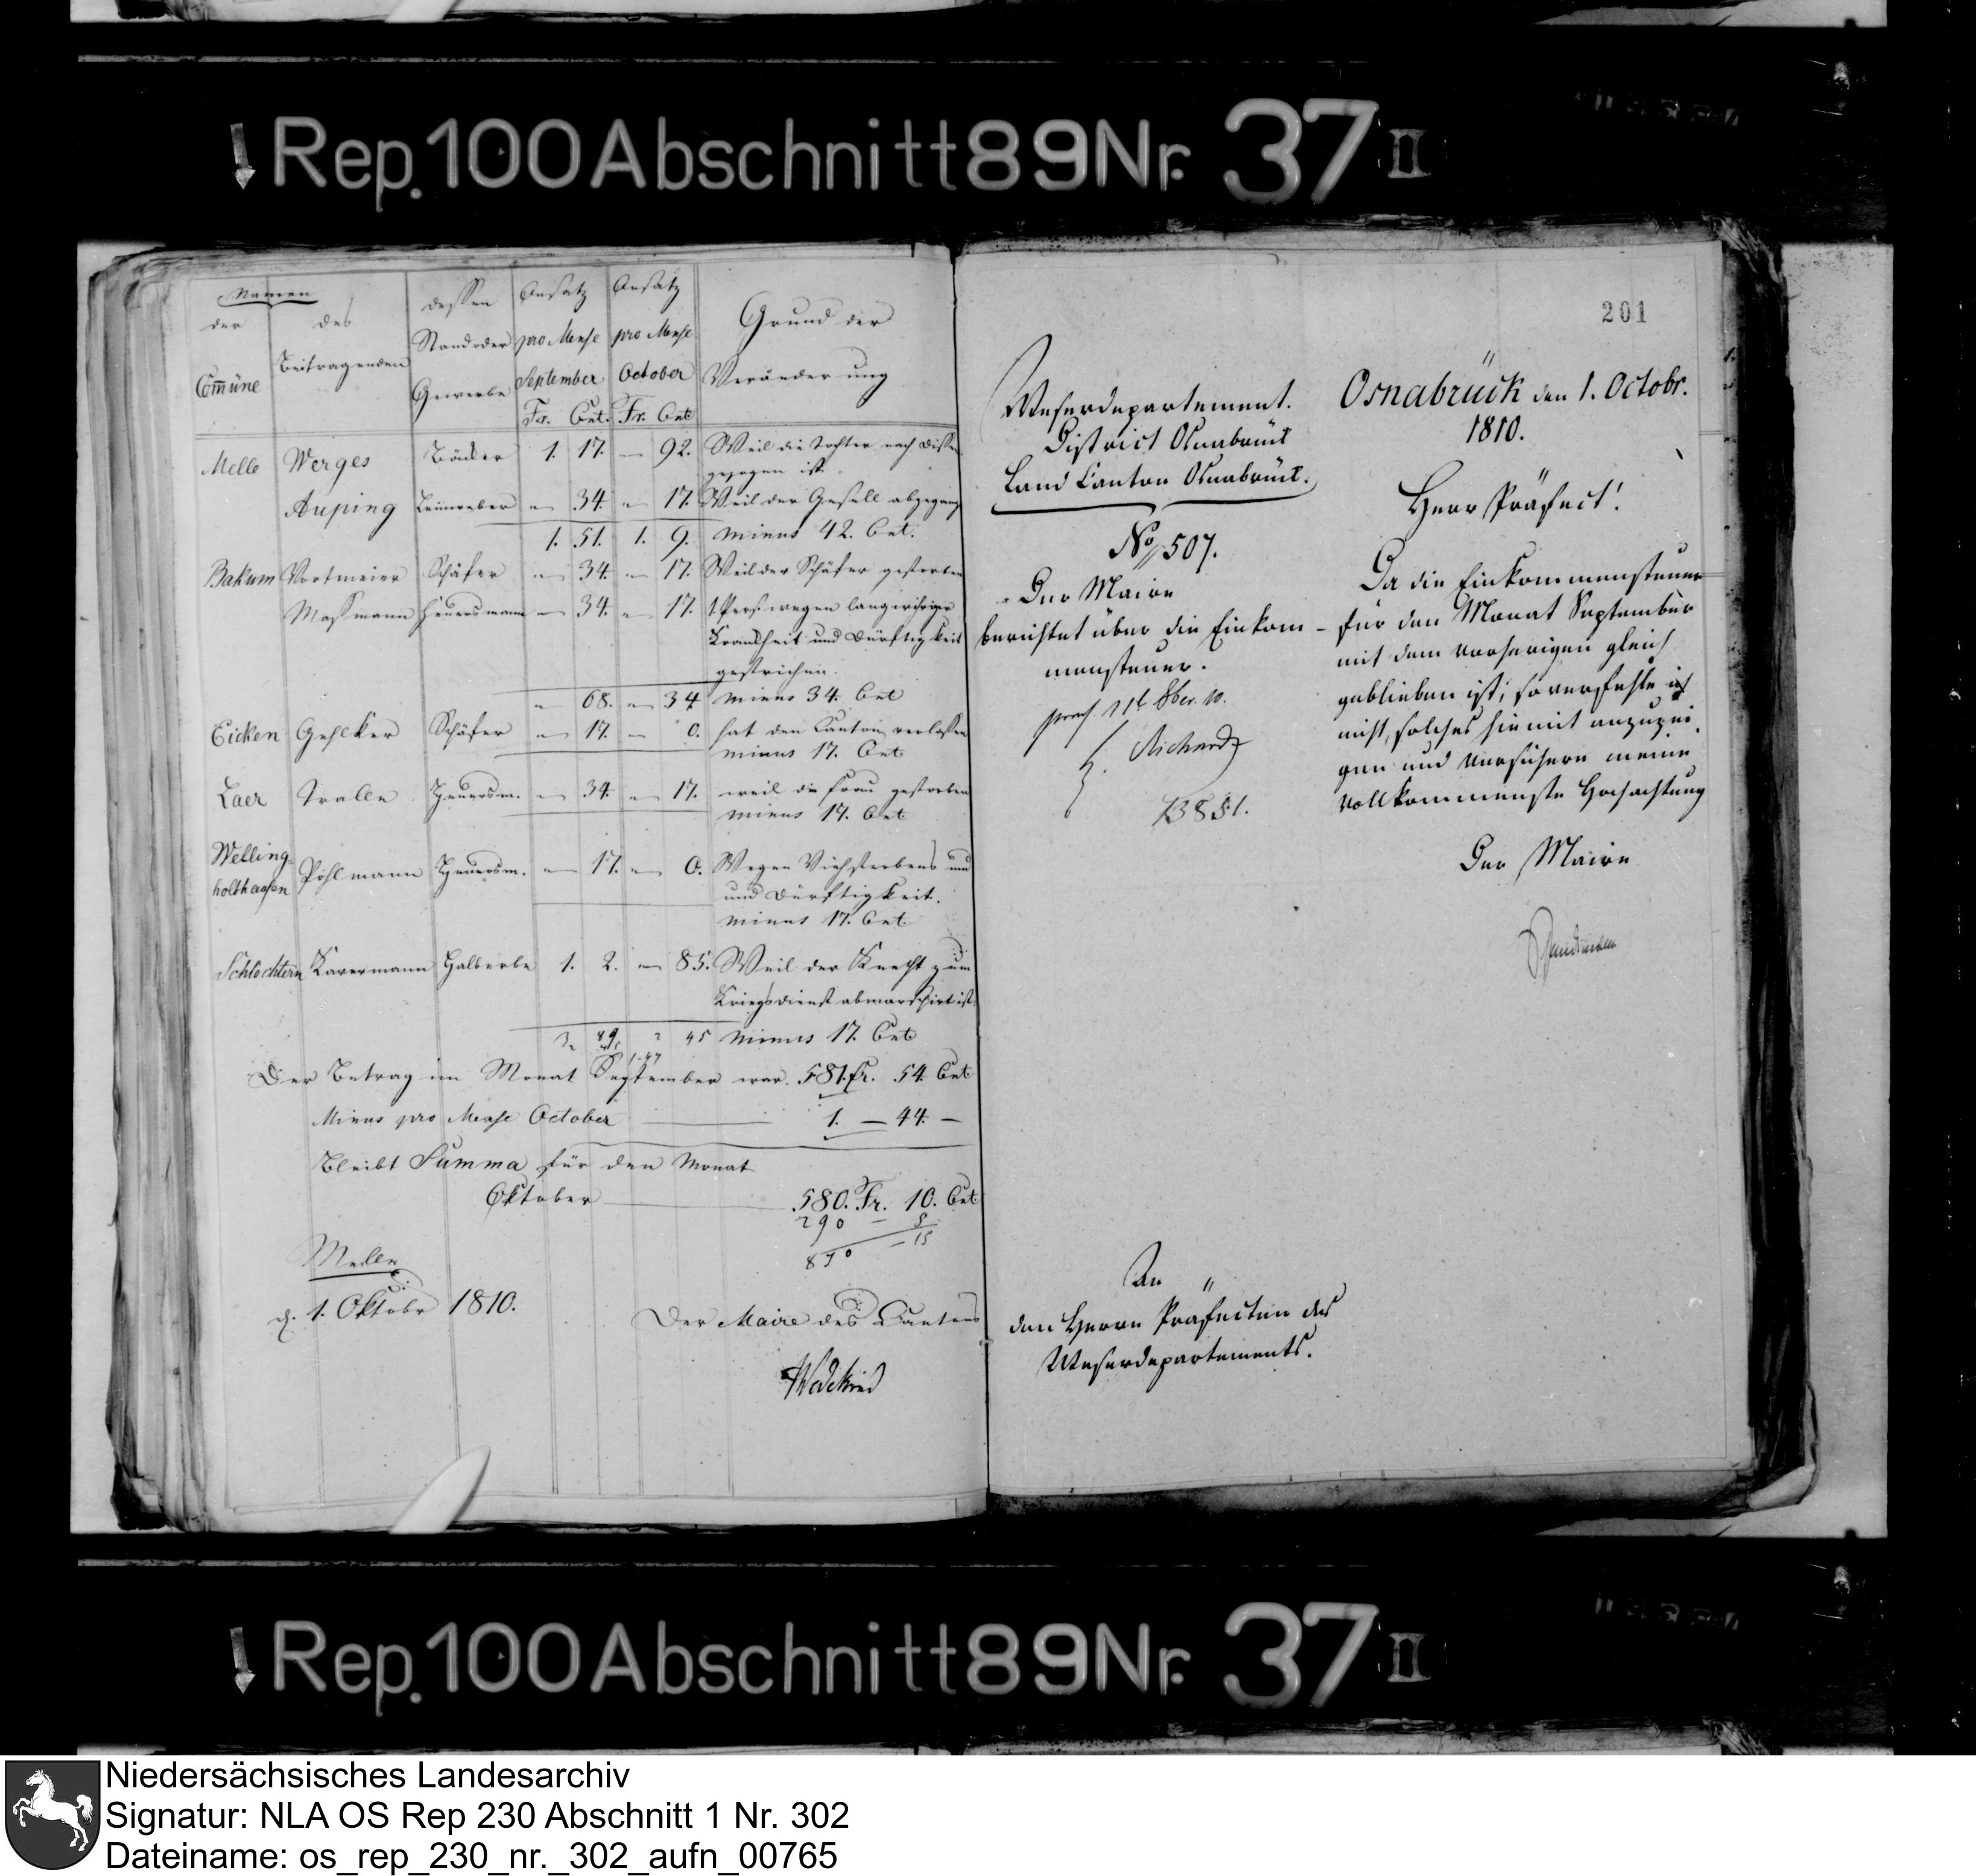 Rep. 100 Abschnitt 89 Nr. 37 II
Namen
der Comüne
des Beitragenden
dessen Stand oder Gewerbe
Ansatz pro Mense September
Fr. Cnt.
Ansatz pro Mense October
Fr. Cnt
Grund der Veränderung
Melle Werges Bäcker 1. 17. — 92. Weil die Tochter nach Dissen
gezogen ist.
Auping Leinweber — 34. — 17. Weil der Gesell abgegang
1. 51. 1. 9. minus 42. Cnt.
Bakum Vortmeier Schäfer — 34. — 17. Weil der Schäfer gestorben
Massmann Heuersmann — 34. — 17. 1. Pers. wegen langwieriger
Krankheit und Dürftigkeit
gestrichen.
— 68. — 34 minus 34. Cnt
Eicken Gehlker Schäfer — 17. — 0. hat den Canton verlassen
minus 17. Cnt
Laer Tralle Heuersm. — 34. — 17. weil die Frau gestorben
minus 17. Cnt
Welling=
holthausen Pöhlmann Heuersm. — 17. — 0. Wegen Viehsterbens und
und Dürftigkeit.
minus 17. Cnt
Schlochtern Kavermann Halberbe 1. 2. — 85. Weil der Knecht zum
Kriegsdienst abmarschirt ist
2 45 minus 17. Cnt
1.47
Der Betrag im Monat September war. 581. Fr. 54. Cnt
Minus pro Mense October 1. — 44. —
Bleibt Summa für den Monat
Oktober 580. Fr. 10. Cnt
290 — 5
870 — 15
Melle
d. 1. Oktobr 1810.
Der Maire des Cantons
Wedekind
201
Weserdepartement.
District Osnabrück
Land Canton Osnabrück.
No 507.
Der Maire
berichtet über die Einkom-
mensteuer.
praes. 1t 8ber. 10.
Richard
13851.
Osnabrück den 1. Octobr.
1810.
Herr Präfect!
Da die Einkommensteuer
für den Monat September
mit dem vorherigen gleich
geblieben ist, so verfehle ich
nicht, solches hiemit anzuzei-
gen und versichere meine
vollkommenste Hochachtung
Der Maire
An
den Herrn Präfecten des
Weserdepartements.
Rep. 100 Abschnitt 89 Nr. 37 II
Niedersächsisches Landesarchiv
Signatur: NLA OS Rep 230 Abschnitt 1 Nr. 302
Dateiname: os_rep_230_nr._302_aufn_00765